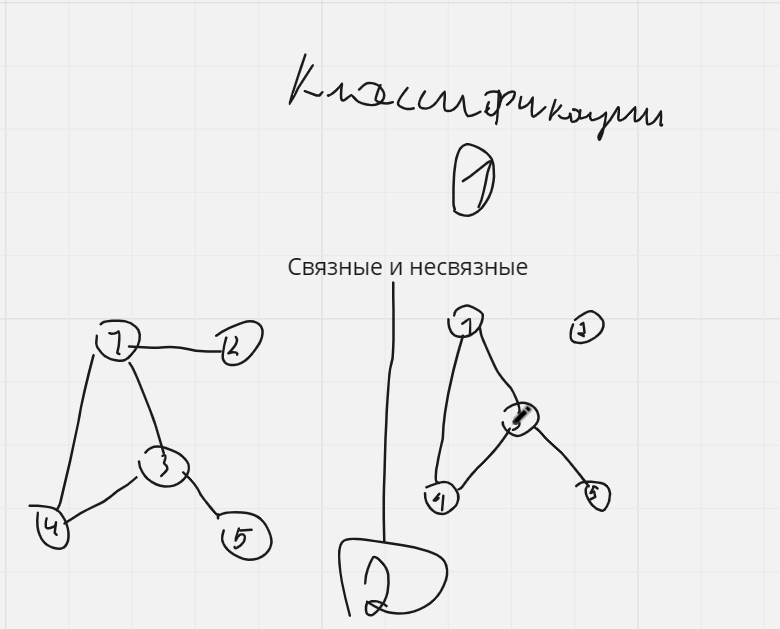 Классификации
1
Связные и несвязные
1 2
3
4 5
1 2
3
4 5
2